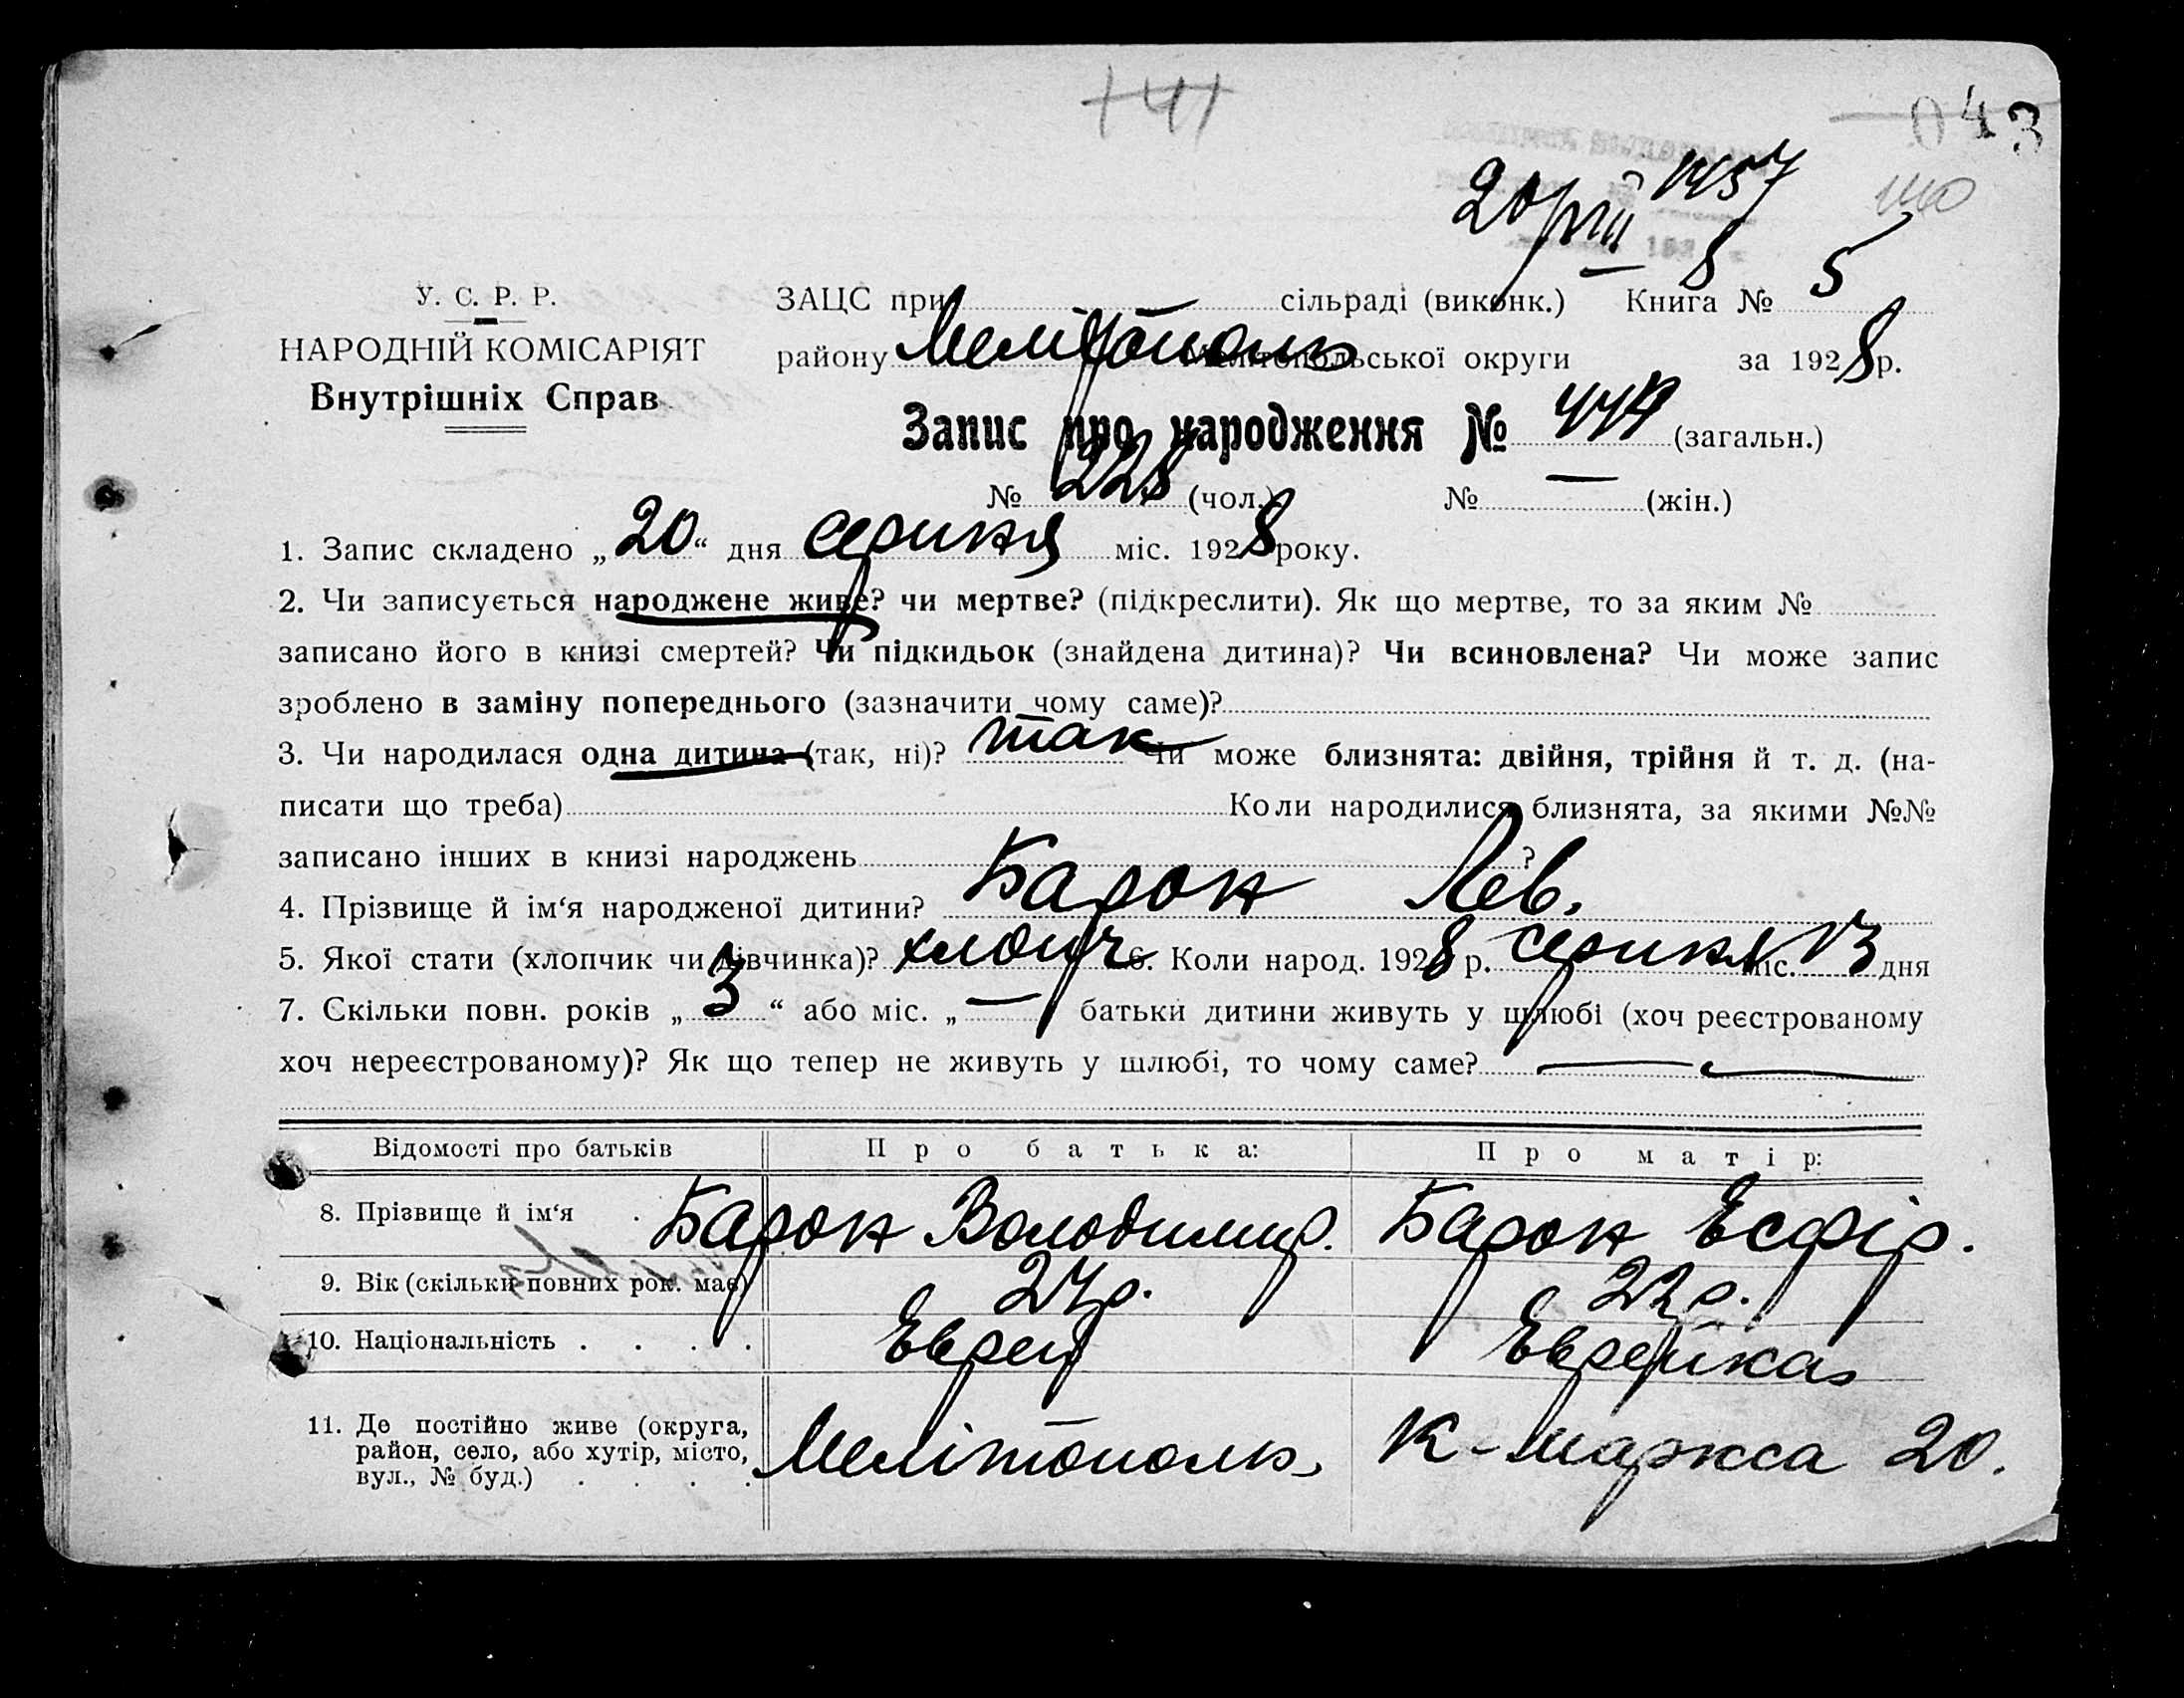 141
043
20/VIII 1457
8
У. С. Р. Р.
НАРОДНІЙ КОМІСАРІЯТ
Внутрішніх Справ
ЗАЦС при сільраді (виконк.) Книга № 5
району Мелітополь Мелітопольської округи за 1928 р.
Запис про народження № 449 (загальн.)
№ 228 (чол.) № — (жін.)
1. Запис складено „20“ дня серпня міс. 1928 року.
2. Чи записується народжене живе? чи мертве? (підкреслити). Як що мертве, то за яким №
записано його в книзі смертей? Чи підкидьок (знайдена дитина)? Чи всиновлена? Чи може запис
зроблено в заміну попереднього (зазначити чому саме)?
3. Чи народилася одна дитина (так, ні)? так Чи може близнята: двійня, трійня й т. д. (на-
писати що треба) Коли народилися близнята, за якими №№
записано інших в книзі народжень ?
4. Прізвище й ім‘я народженої дитини? Барон Лев.
5. Якої стати (хлопчик чи дівчинка)? хлопч 6. Коли народ. 1928 р. серпня міс. 13 дня
7. Скільки повн. років „3“ або міс. „— батьки дитини живуть у шлюбі (хоч реєстрованому
хоч нереєстрованому)? Як що тепер не живуть у шлюбі, то чому саме? —
Відомості про батьків Про батька: Про матір:
8. Прізвище й ім‘я . Барон Володимир. Барон Есфір.
9. Вік (скільки повних рок. має) 27р. 22р.
10. Національність . . . . Еврей Еврейка
11. Де постійно живе (округа,
район, село, або хутір, місто,
вул., № буд.) . . . . Мелітополь, К-Маркса 20.